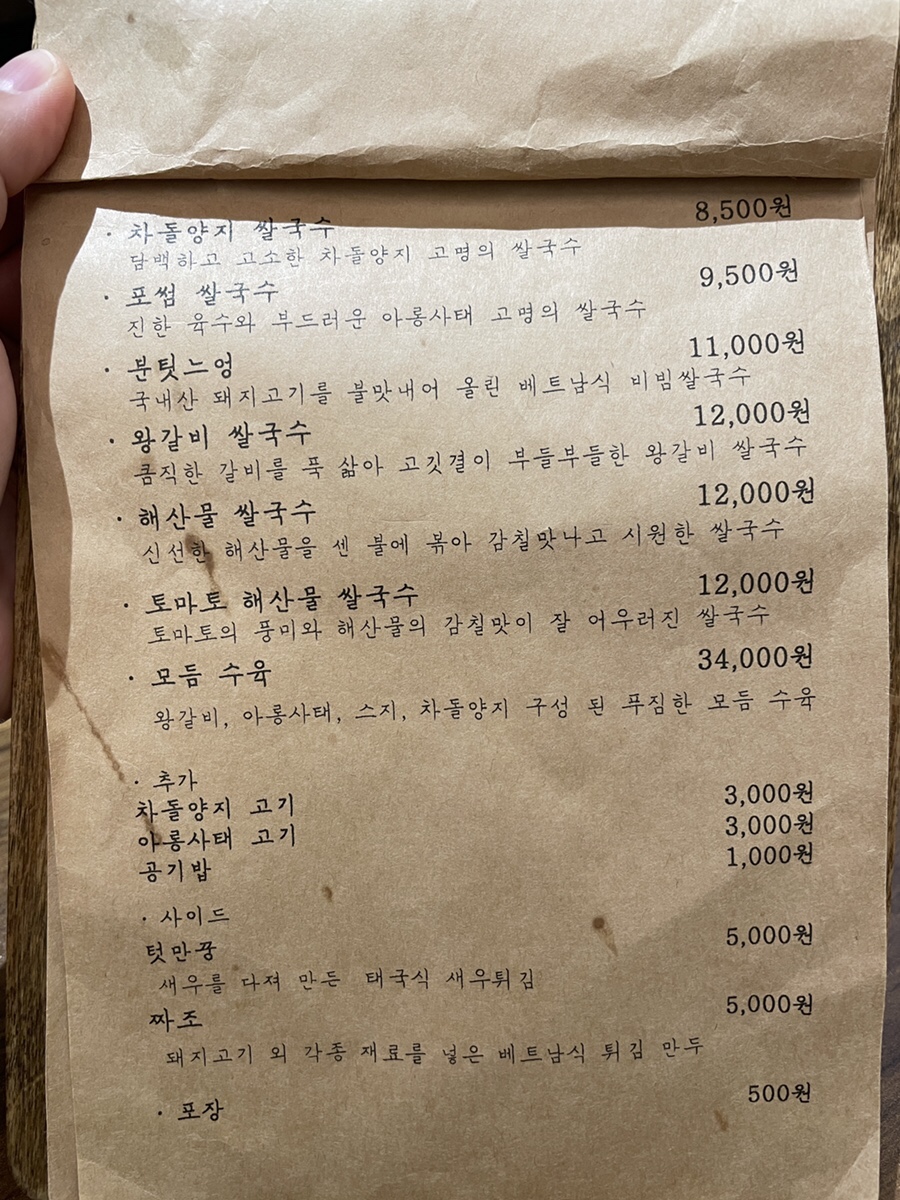 · 차돌양지 쌀국수 8,500원
담백하고 고소한 차돌양지 고명의 쌀국수
· 포썸 쌀국수 9,500원
진한 육수와 부드러운 아롱사태 고명의 쌀국수
· 분팃느엉 11,000원
국내산 돼지고기를 불맛내어 올린 베트남식 비빔쌀국수
· 왕갈비 쌀국수 12,000원
큼직한 갈비를 푹 삶아 고깃결이 부들부들한 왕갈비 쌀국수
· 해산물 쌀국수 12,000원
신선한 해산물을 센 불에 볶아 감칠맛나고 시원한 쌀국수
· 토마토 해산물 쌀국수 12,000원
토마토의 풍미와 해산물의 감칠맛이 잘 어우러진 쌀국수
· 모듬 수육 34,000원
왕갈비, 아롱사태, 스지, 차돌양지 구성 된 푸짐한 모듬 수육
· 추가
차돌양지 고기 3,000원
아롱사태 고기 3,000원
공기밥 1,000원
· 사이드
텃만꿍 5,000원
새우를 다져 만든 태국식 새우튀김
짜조 5,000원
돼지고기 외 각종 재료를 넣은 베트남식 튀김 만두
· 포장 500원